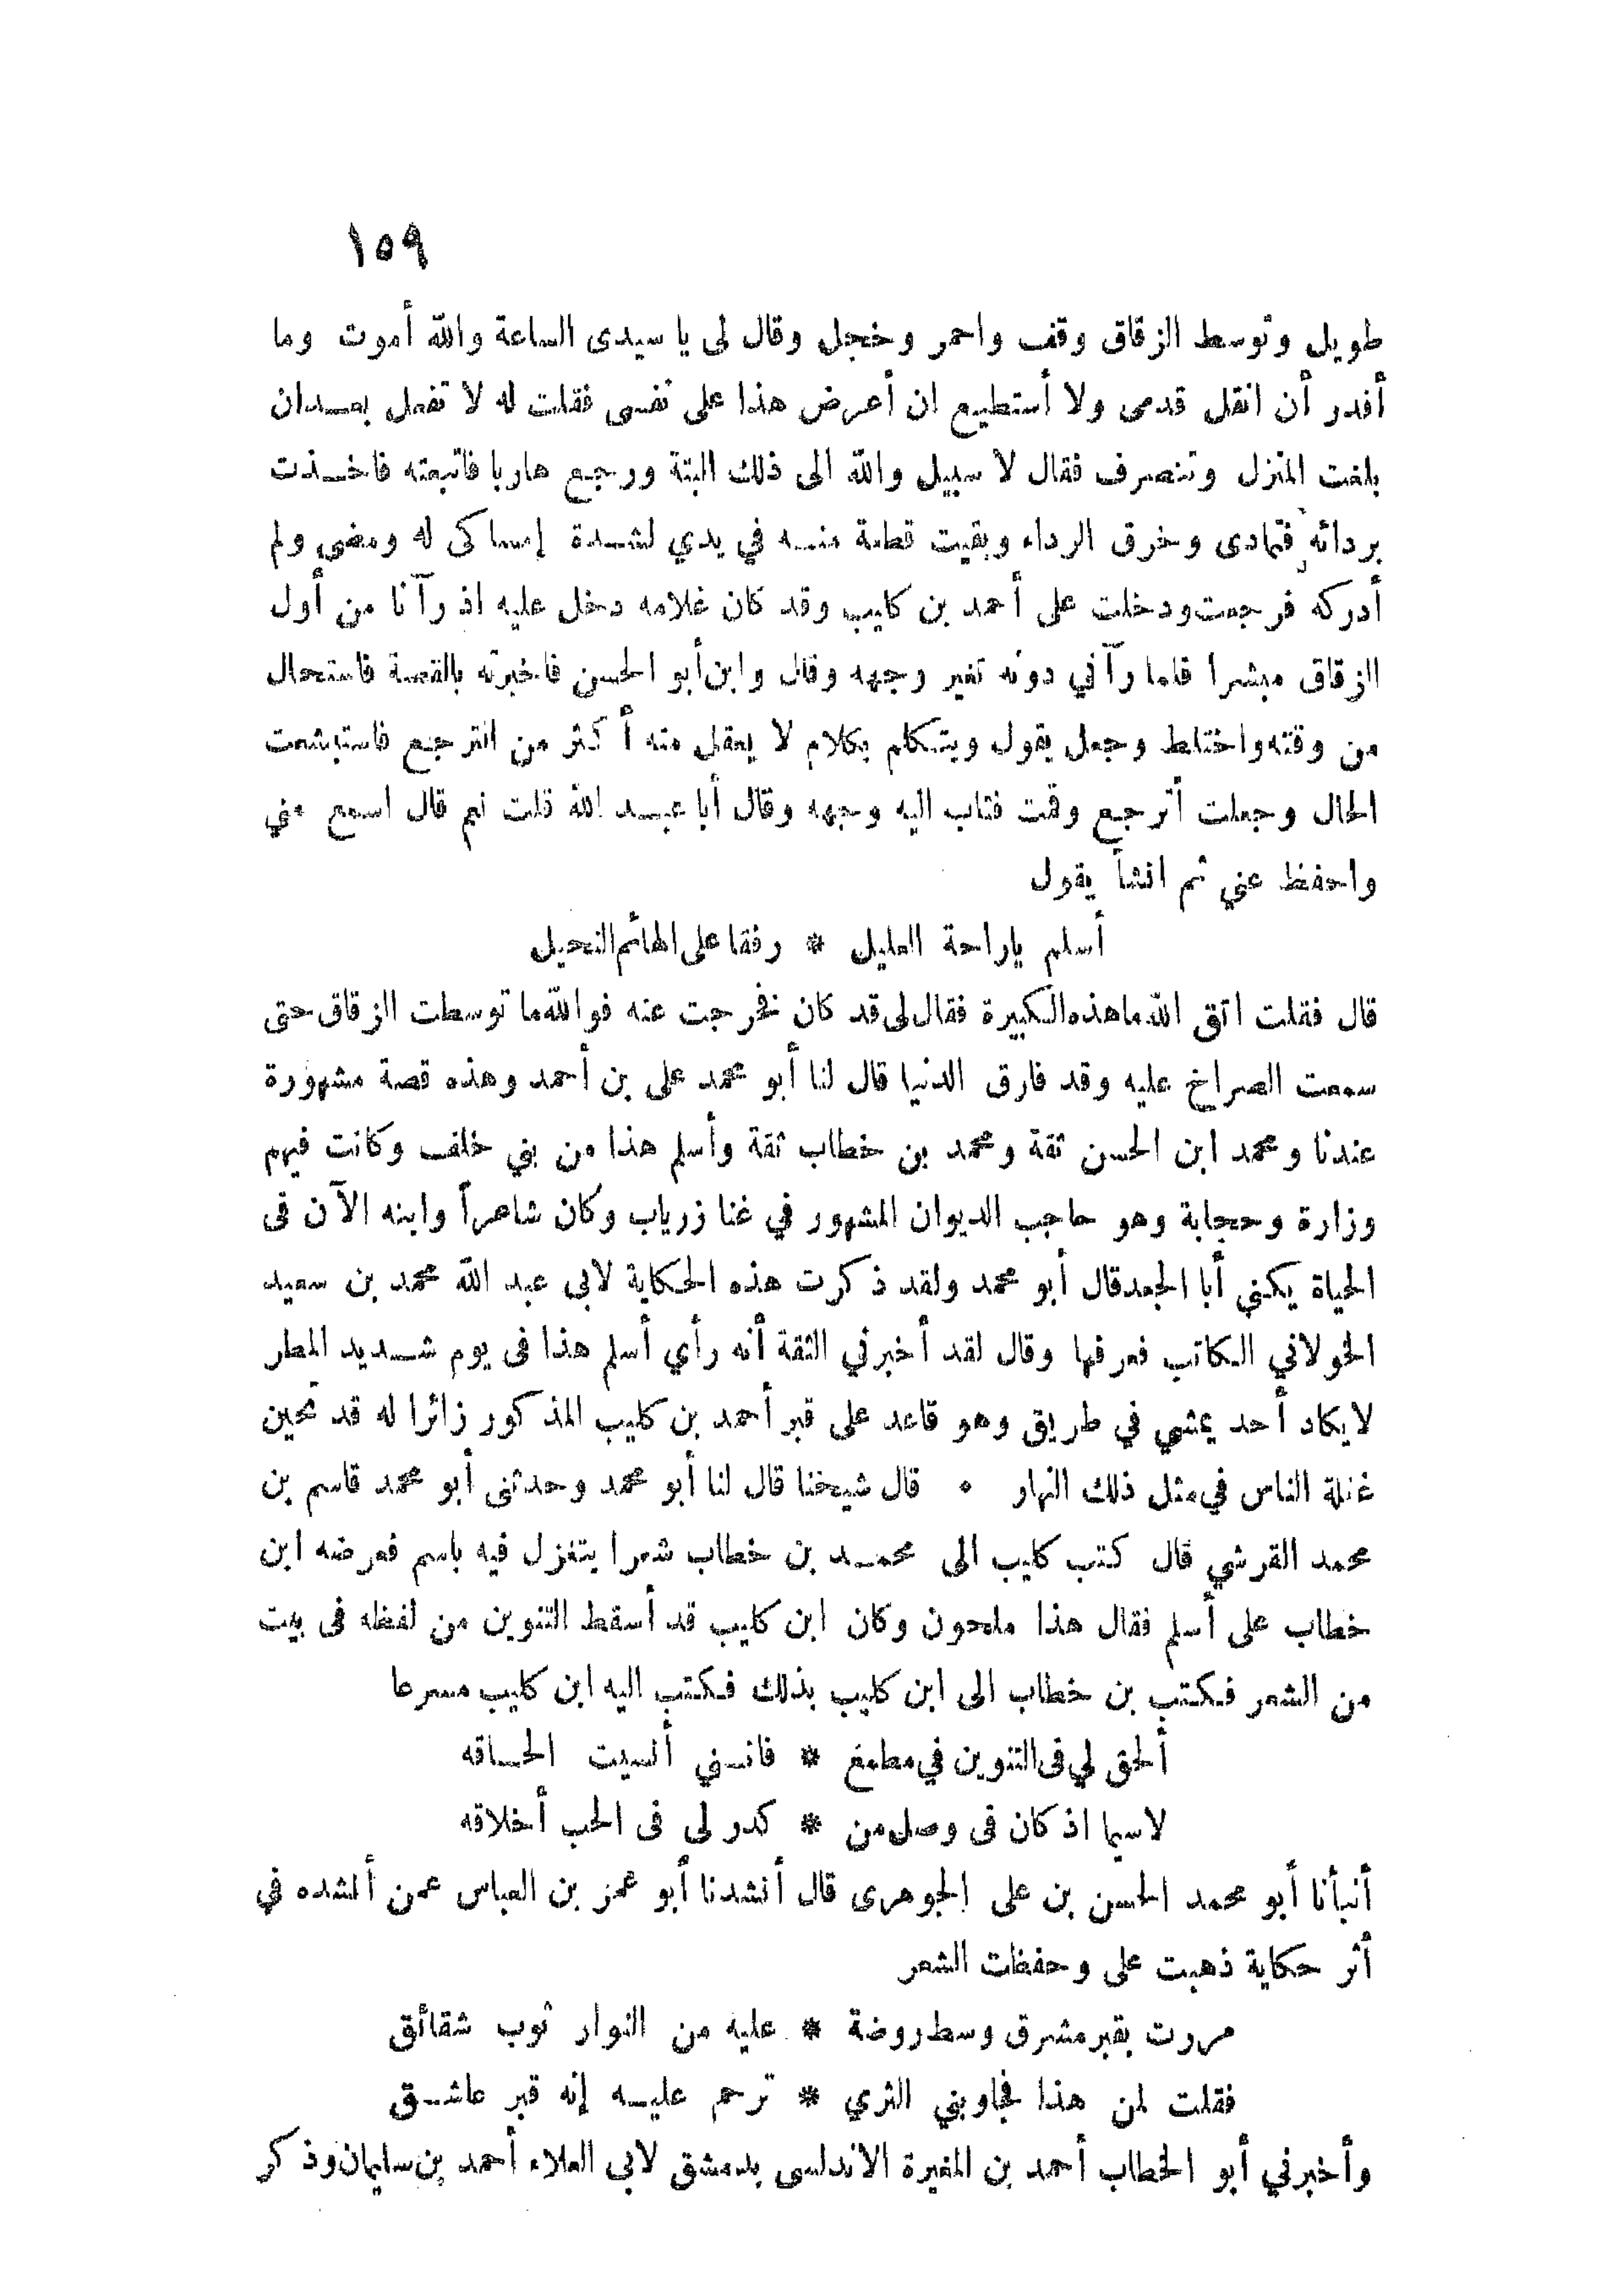 ١٥٩
طويل وتوسط الزقاق وقف واحمر وخجل وقال لى يا سيدى الساعة والله أموت وما
أقدر أن انقل قدمى ولا أستطيع ان أعرض هذا على نفسى فقلت له لا تفعل بعد ان
بلغت المنزل وتنصرف فقال لا سبيل والله الى ذلك البتة ورجع هاربا فاتبعته فاخذت
بردائه فتمادى وخرق الرداء وبقيت قطعة منه في يدي لشدة إمساكى له ومضى ولم
أدركه فرجعت ودخلت على أحمد بن كليب وقد كان غلامه دخل عليه اذ رآنا من أول
الزقاق مبشرا فلما رآني دونه تغير وجهه وقال وابن أبو الحسن فاخبرته بالقصة فاستحال
من وقته واختلط وجعل يقول ويتكلم بكلام لا يعقل منه أكثر من الترجع فاستبشعت
الحال وجعلت أترجع وقمت فثاب اليه وجهه وقال أبا عبد الله قلت نعم قال اسمع مني
واحفظ عني ثم انشأ يقول
أسلم ياراحة العليل * رفقا على الهائم النحيل
قال فقلت اتق الله ما هذه الكبيرة فقال لى قد كان فخرجت عنه فوالله ما توسطت الزقاق حتى
سمعت الصراخ عليه وقد فارق الدنيا قال لنا أبو محمد على بن أحمد وهذه قصة مشهورة
عندنا ومحمد ابن الحسن ثقة ومحمد بن خطاب ثقة وأسلم هذا من بني خلف وكانت فيهم
وزارة وحجابة وهو حاجب الديوان المشهور في غنا زرياب وكان شاعراً وابنه الآن فى
الحياة يكنى أبا الجعد قال أبو محمد ولقد ذكرت هذه الحكاية لابى عبد الله محمد بن سعيد
الخولاني الكاتب فعرفها وقال لقد أخبرني الثقة أنه رأي أسلم هذا فى يوم شديد المطر
لا يكاد أحد يمشي في طريق وهو قاعد على قبر أحمد بن كليب المذكور زائرا له قد تحين
غفلة الناس في مثل ذلك النهار • قال شيخنا قال لنا أبو محمد وحدثنى أبو محمد قاسم بن
محمد القرشي قال كتب كليب الى محمد بن خطاب شعرا يتغزل فيه باسم فعرضه ابن
خطاب على أسلم فقال هذا ملحون وكان ابن كليب قد أسقط التنوين من لفظه فى بيت
من الشعر فكتب بن خطاب الى ابن كليب بذلك فكتب اليه ابن كليب مسرعا
ألحق لي فى التنوين في مطمع * فانني أنسيت الحاقه
لاسيما اذ كان فى وصل من * كدر لى فى الحب أخلاقه
أنبأنا أبو محمد الحسن بن على الجوهرى قال أنشدنا أبو عمر بن العباس عمن أنشده في
أثر حكاية ذهبت على وحفظت الشعر
مررت بقبر مشرق وسط روضة * عليه من النوار ثوب شقائق
فقلت لمن هذا فجاوبني الثري * ترحم عليه إنه قبر عاشق
وأخبرني أبو الخطاب أحمد بن المغيرة الاندلسى بدمشق لابى العلاء أحمد بن سليمان وذكر